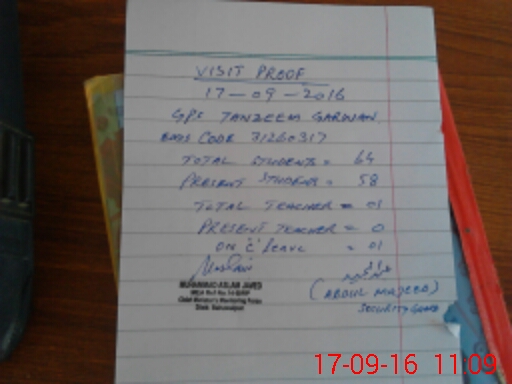 VISIT PROOF
17-09-2016
GPS TANZEEM GARWAN.
EMIS CODE 31260317
TOTAL STUDENTS = 64
PRESENT STUDENT = 58
TOTAL TEACHER = 01
PRESENT TEACHER = 0
ON 'C' leave = 01
MUHAMMAD ASLAM JAVED
Chief Minister's Monitoring Force
(ABDUL MAJEED)
SECURITY GUARD
17-09-16 11:09